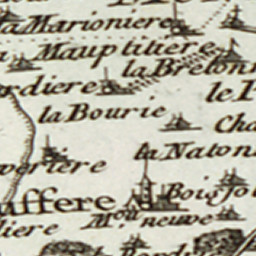 la Marioniere
Mauptitiere
la Breton
rdiere
le P
la Bourie
Cha
la Naton
veriere
Bois Jo
uffere
M.ou neuve
liere
la Bordu